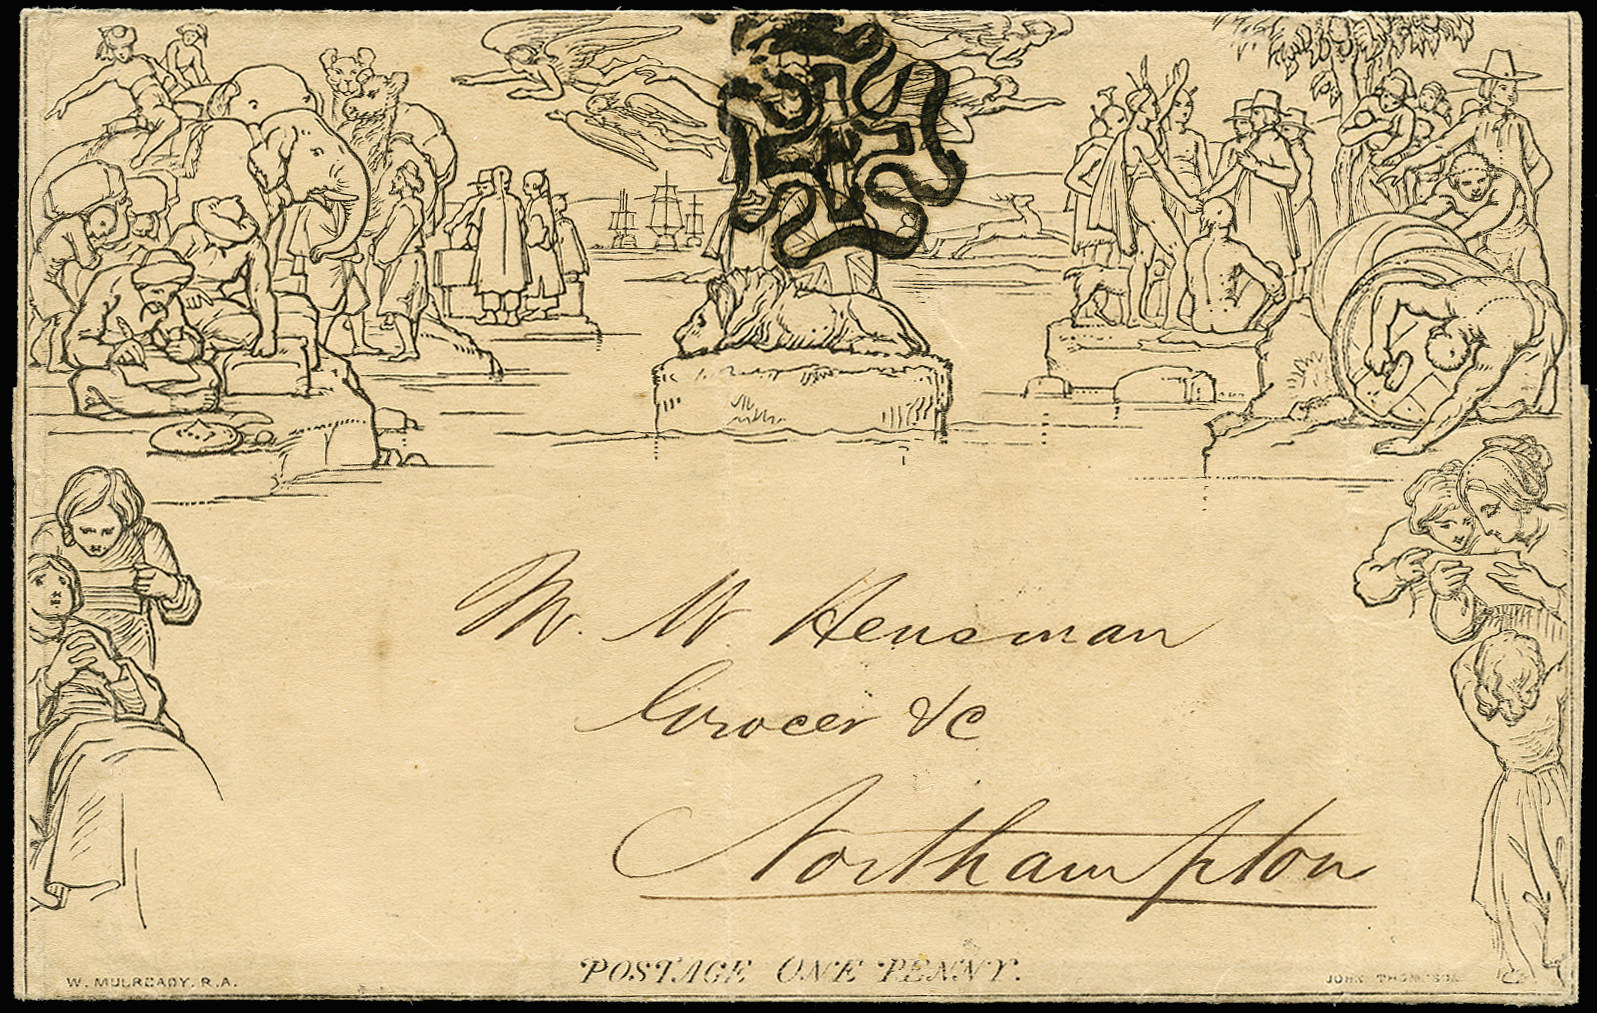 Mr. W Hensman
Grocer &c
Northampton
POSTAGE ONE PENNY.
W. MULREADY. R.A.
JOHN THOMPSON